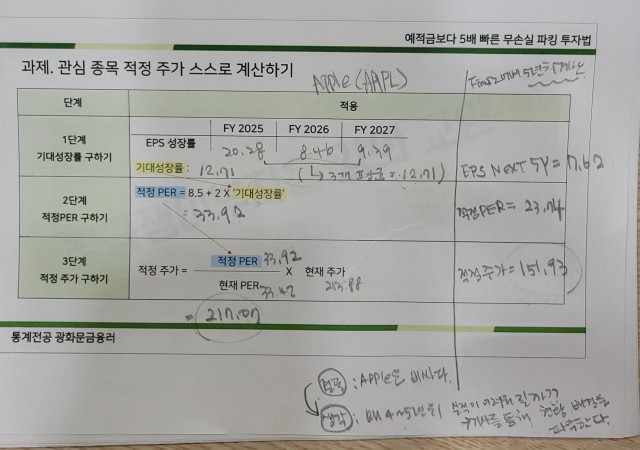 예적금보다 5배 빠른 무손실 파킹 투자법
과제. 관심 종목 적정 주가 스스로 계산하기
Apple (AAPL)
단계
적용
1단계
기대성장률 구하기
FY 2025 FY 2026 FY 2027
EPS 성장률 20.28 8.46 9.39
기대성장률: 12.71
(→ 3개 평균 = 12.71)
EPS NEXT 5Y = 7.62
2단계
적정PER 구하기
적정 PER = 8.5 + 2 X '기대성장률'
= 33.92
적정PER = 23.74
3단계
적정 주가 구하기
적정 PER 33.92
적정 주가 = X 현재 주가
현재 PER 33.42 213.88
= 217.07
적정주가 = 151.93
통계전공 광화문금융러
결론 : Apple은 비싸다.
생각 : 왜 4~5년 뒤 실적이
파악한다.